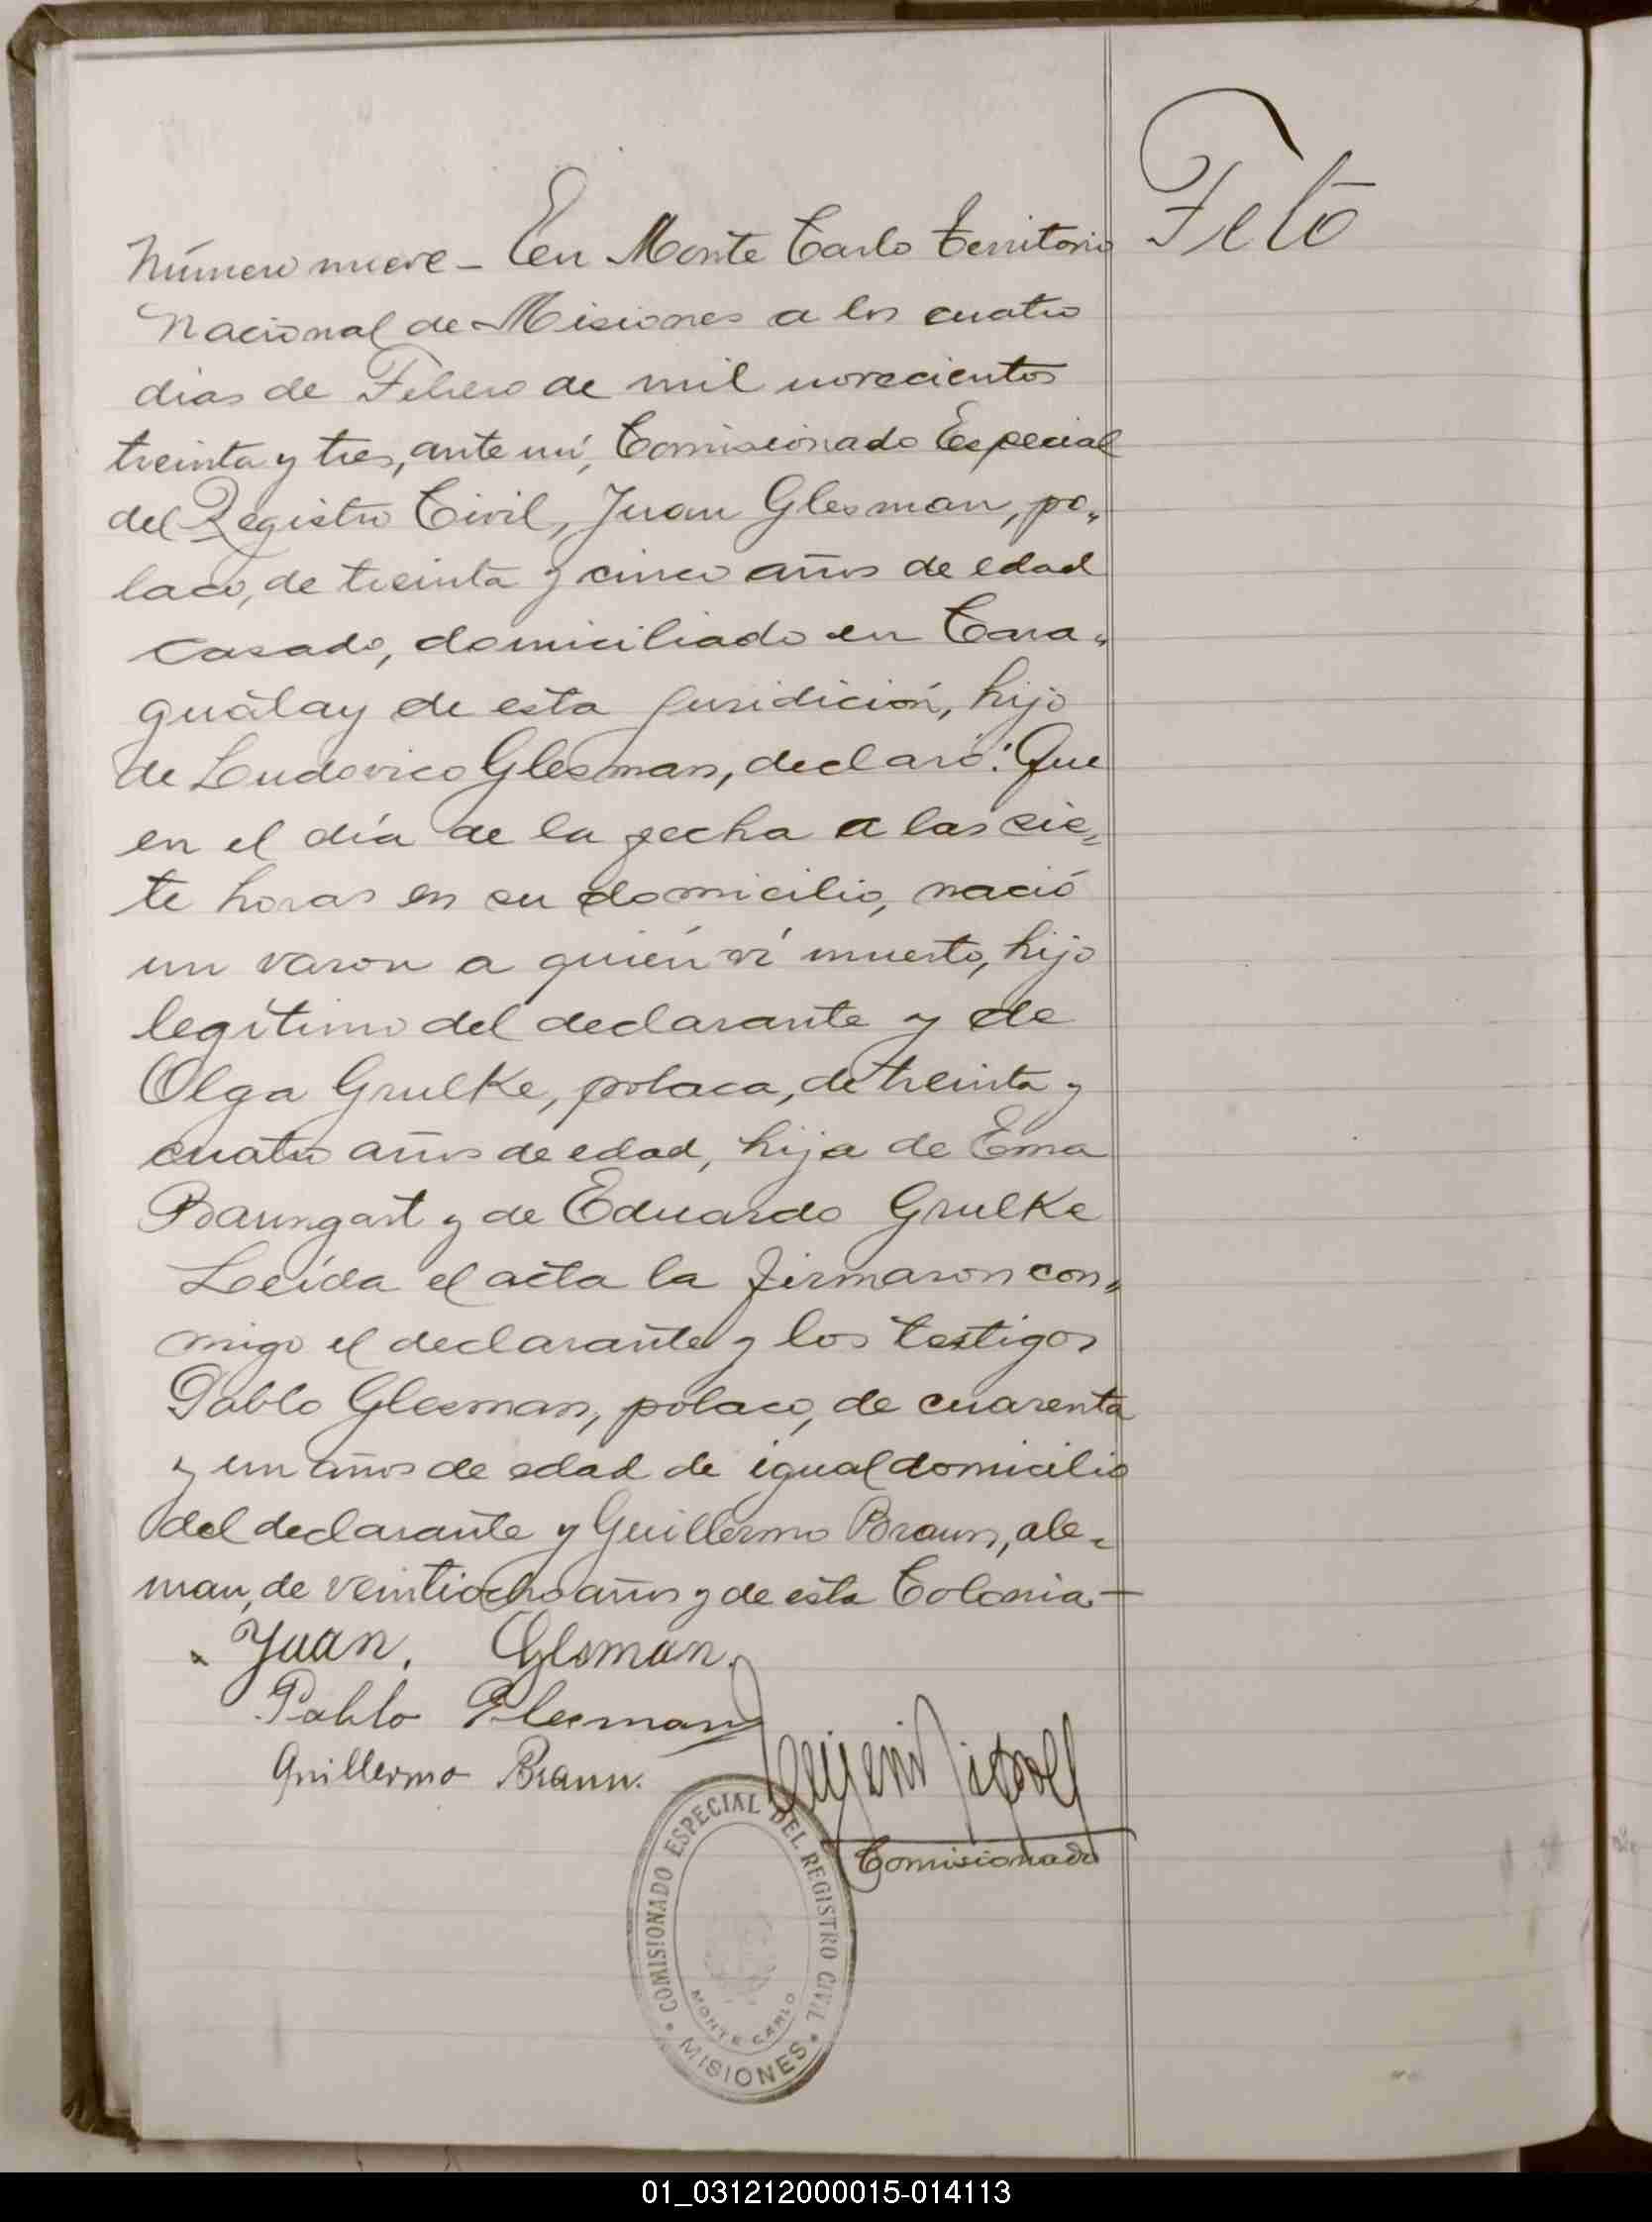 Feto
Número nueve - En Monte Carlo Territorio
Nacional de Misiones a los cuatro
dias de Febrero de mil novecientos
treinta y tres, ante mí, Comisionado Especial
del Registro Civil, Juan Glesman, po„
laco, de treinta y cinco años de edad
casado, domiciliado en Cara„
guatay de esta juridición, hijo
de Ludovico Glesman, declaró: Que
en el día de la fecha a las sie„
te horas en su domicilio, nació
un varon a quién ví muerto, hijo
legítimo del declarante y de
Olga Grulke, polaca, de treinta y
cuatro años de edad, hija de Ema
Baumgart y de Eduardo Grulke
Leída el acta la firmaron con„
migo el declarante y los testigos
Pablo Glesman, polaco, de cuarenta
y un años de edad de igual domicilio
del declarante y Guillermo Braun, ale-
man, de veintiocho años y de esta Colonia.-
Juan. Glesman.
Pablo Glesman
Guillermo Braun.
Comisionado
COMISIONADO ESPECIAL DEL REGISTRO CIVIL
MONTE CARLO
• MISIONES •
01_031212000015-014113